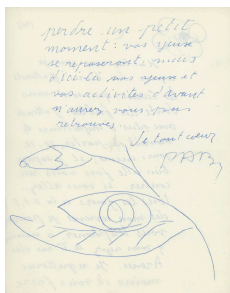 perdre un petit
moment : vos yeux
se reposeront, mais
vos yeux et
vos activités d'avant
n'aurez vous pas
retrouvés
De tout cœur